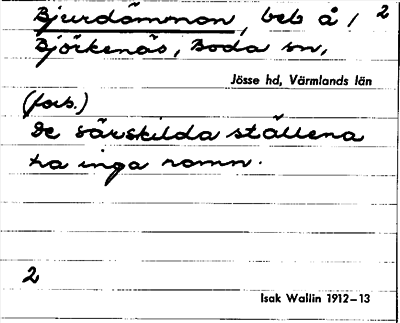 Bjurdämman, beb å 1 2
Björkenäs, Boda sn,
Jösse hd, Värmlands län
(förs.)
De särskilda ställena
ha inga namn.
2
Isak Wallin 1912–13